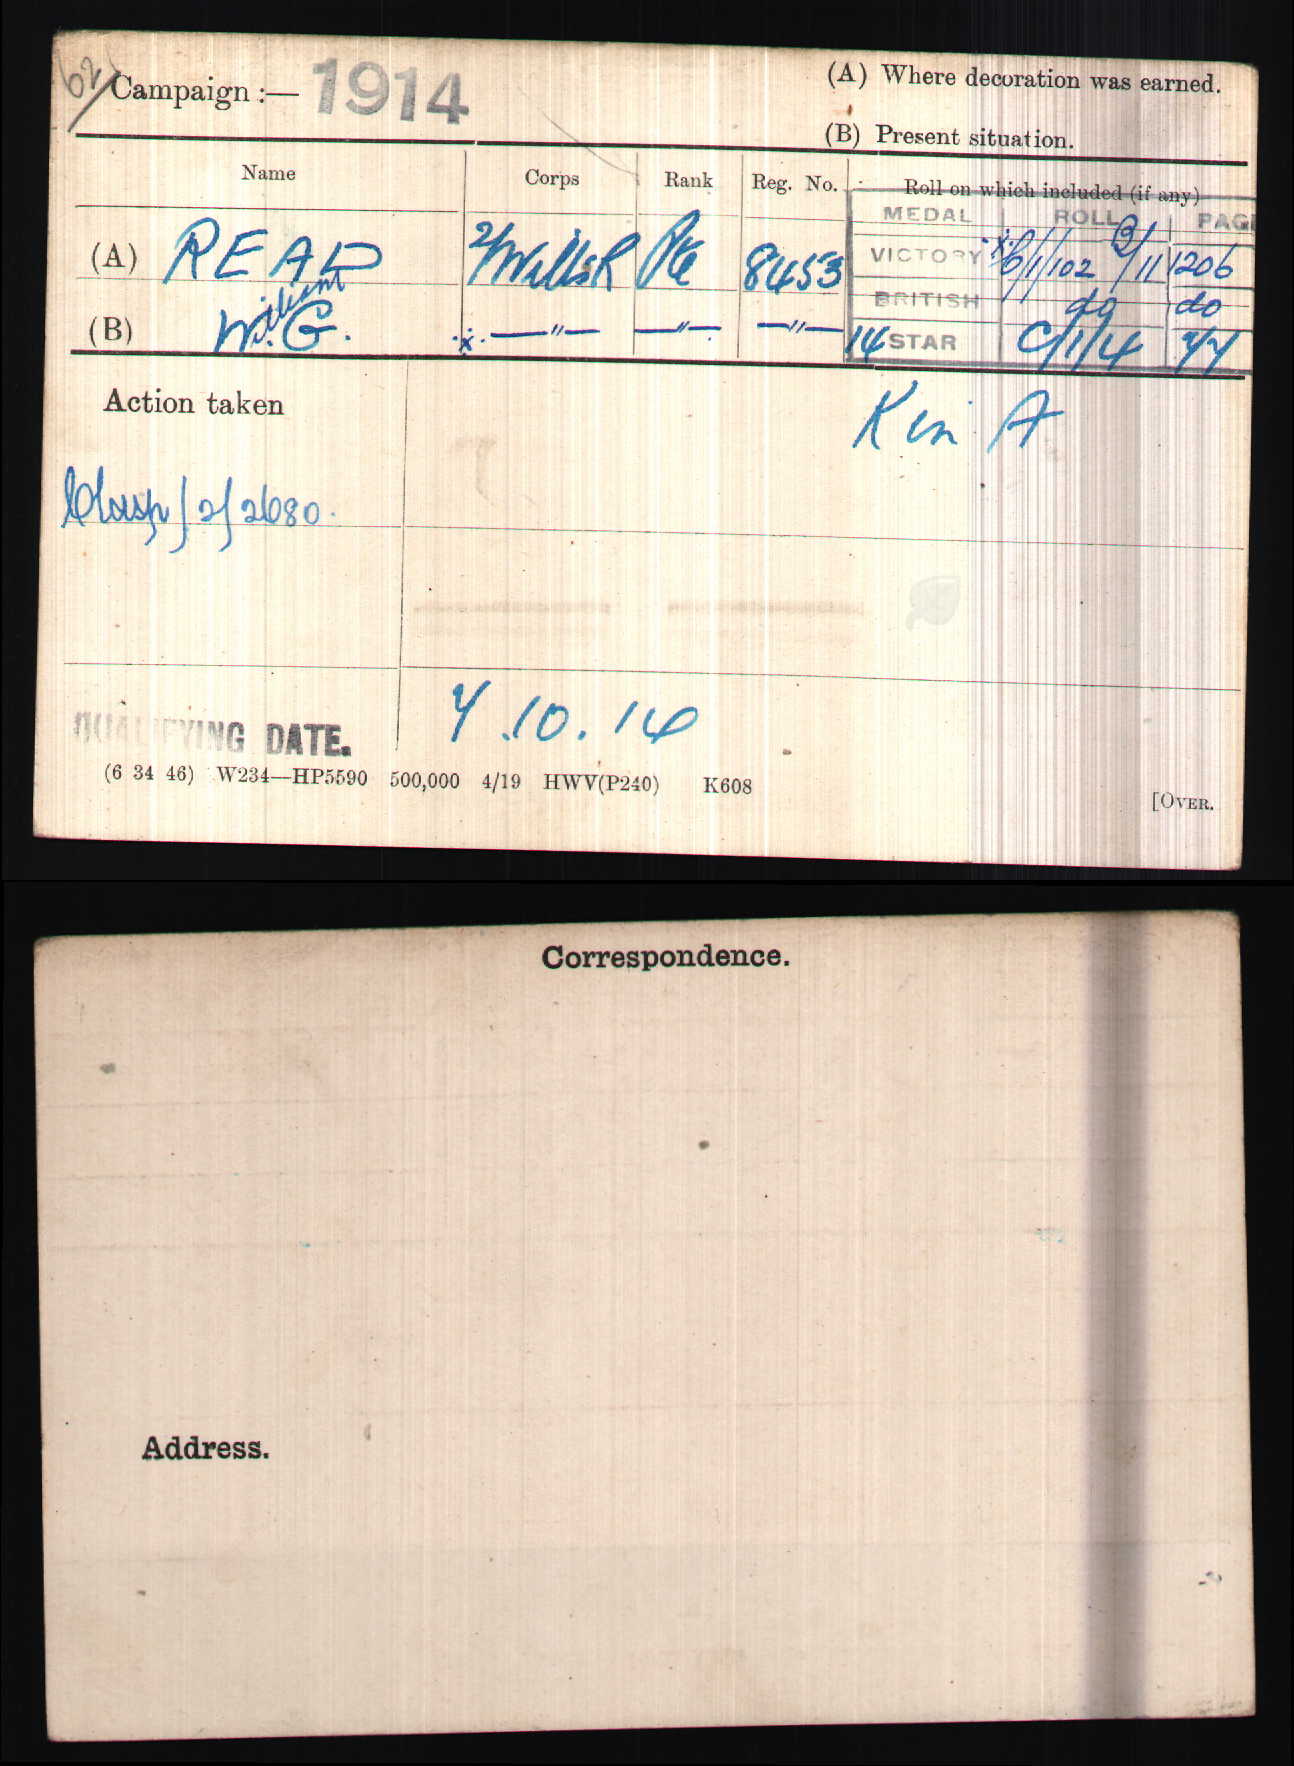 62/
Campaign :— 1914
(A) Where decoration was earned.
(B) Present situation.
Name Corps Rank Reg. No. Roll on which included (if any)
MEDAL ROLL PAGE
(A) READ 2/Wilts R Pte 8453 VICTORY x. O/1/102 B/11 1206
BRITISH do do
(B) W. William G. x. —"— —"— —"— 14 STAR C/1/4 77
Action taken
Kin A
Clasp/2/2680.
QUALIFYING DATE. 7.10.14
(6 34 46) W234—HP5590 500,000 4/19 HWV(P240) K608
[OVER.
Correspondence.
Address.